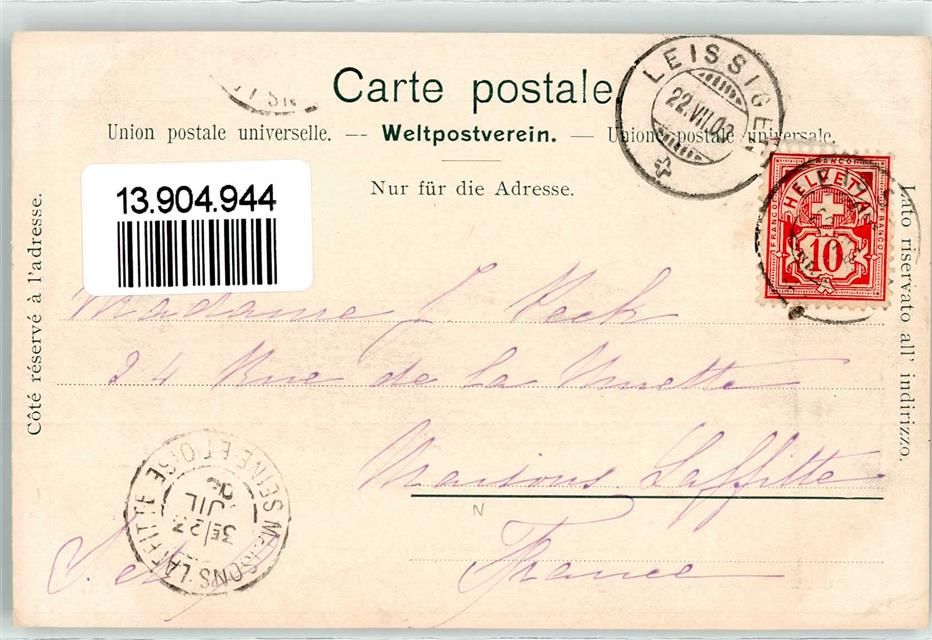 Carte postale
Union postale universelle. — Weltpostverein. — Unione postale universale.
Nur für die Adresse.
Côté réservé à l'adresse.
Lato riservato all' indirizzo.
13.904.944
LEISSIGEN
22.VII.02
FRANCO
HELVETIA
FRANCO
FRANCO
10
Madame J.
24 Rue de la Muette
Maisons Laffitte
France
MAISONS-LAFFITTE
SEINE ET OISE
3E/23
JUIL
N